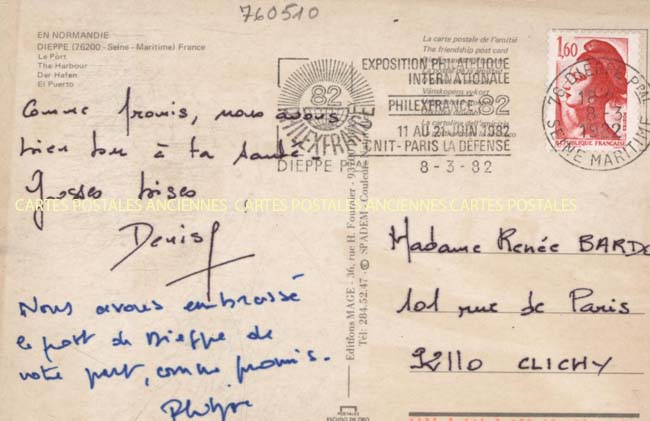 760510
EN NORMANDIE
DIEPPE (76200 - Seine - Maritime) France
Le Port
The Harbour
Der Hafen
El Puerto
La carte postale de l'amitié
The friendship post card
EXPOSITION PHILATELIQUE
INTERNATIONALE
Vänskapens vykort
PHILEXFRANCE 82
11 AU 21 JUIN 1982
CNIT - PARIS LA DÉFENSE
8-3-82
82
PHILEXFRANCE
DIEPPE PPAL
1,60
REPUBLIQUE FRANÇAISE
76 DIEPPE PPAL
8-3
1982
SEINE MARITIME
Comme promis, nous avons
bien bu à ta santé.
Grosses bises
Denis
CARTES POSTALES ANCIENNES CARTES POSTALES ANCIENNES CARTES POSTALES ANCIENNES
Nous avons embrassé
le port de Dieppe de
votre part, comme promis.
Editions MAGE - 36, rue H. Fournier -
Tél: 284.52.47 - © SPADEM -
Madame Renée BARDE
101 rue de Paris
92110 CLICHY
POSTALES
ESCUDO DE ORO